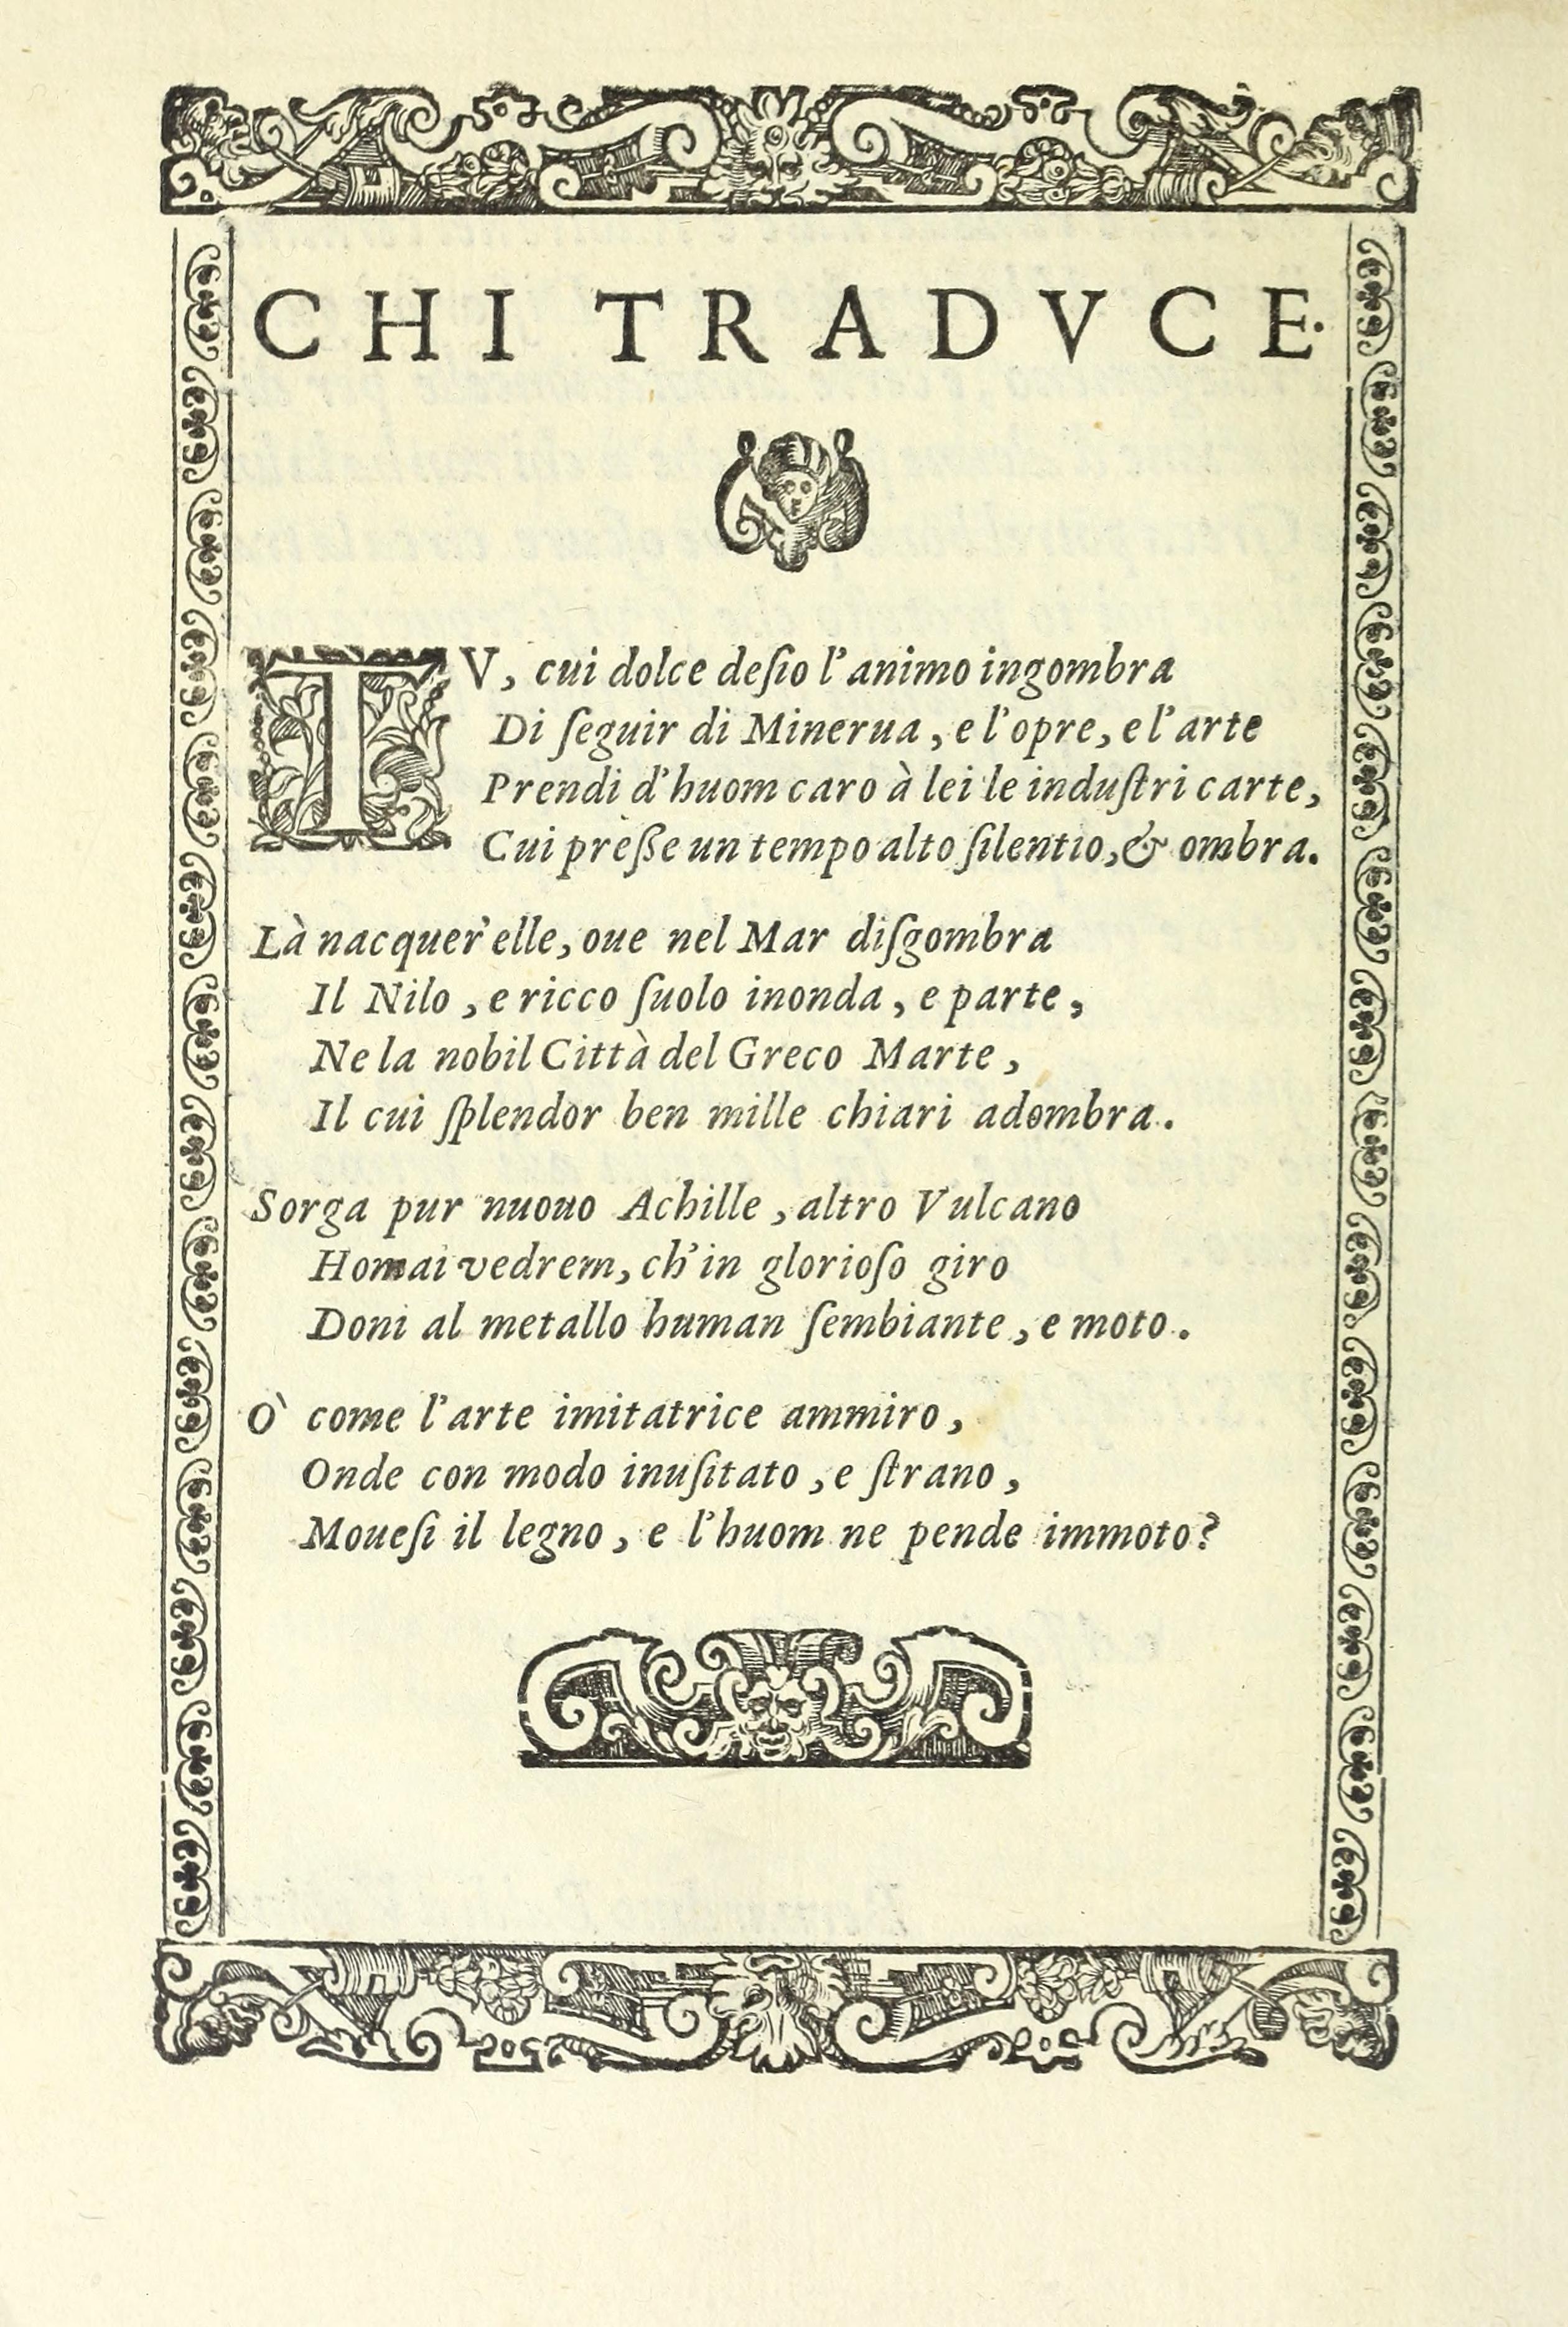 CHI TRADVCE.
TV, cui dolce deſio l'animo ingombra
Di ſeguir di Minerua, e l'opre, e l'arte
Prendi d'huom caro à lei le induſtri carte,
Cui preße un tempo alto ſilentio, & ombra.
Là nacquer' elle, oue nel Mar diſgombra
Il Nilo, e ricco ſuolo inonda, e parte,
Ne la nobil Città del Greco Marte,
Il cui ſplendor ben mille chiari adombra.
Sorga pur nuouo Achille, altro Vulcano
Homai vedrem, ch'in glorioſo giro
Doni al metallo human ſembiante, e moto.
O` come l'arte imitatrice ammiro,
Onde con modo inuſitato, e ſtrano,
Moueſi il legno, e l'huom ne pende immoto?